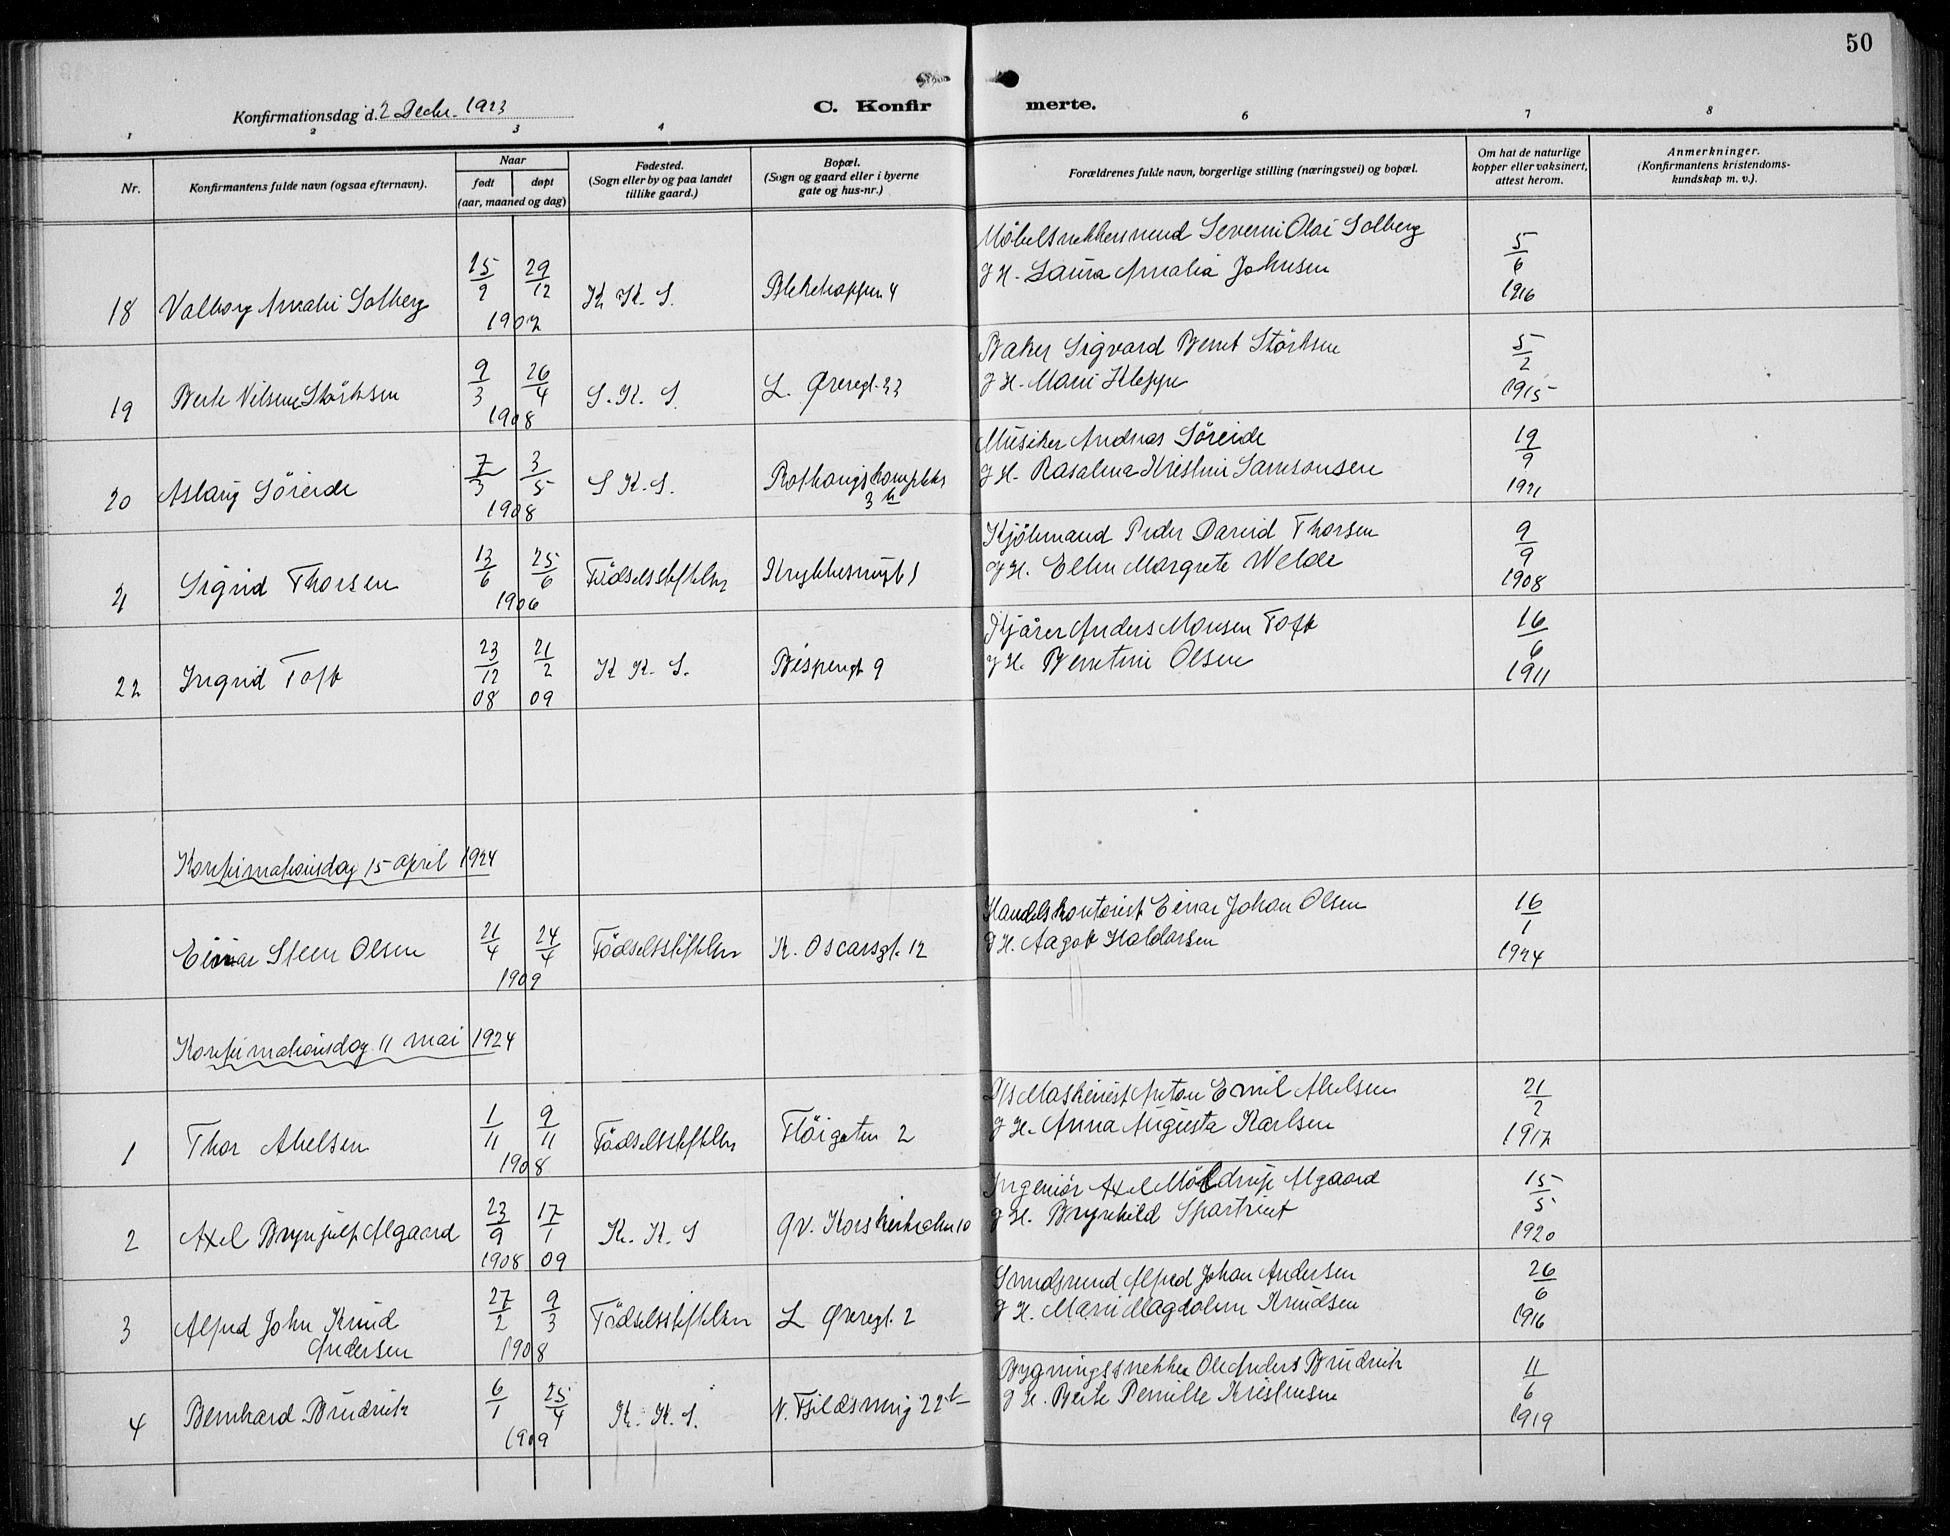 50
Konfirmationsdag d. 2 Decbr. 1923
C. Konfirmerte.
1 2 3 4 6 7 8
Nr.
Konfirmantens fulde navn (ogsaa efternavn).
Naar
født døpt
(aar, maaned og dag)
Fødested.
(Sogn eller by og paa landet
tillike gaard.)
Bopæl.
(Sogn og gaard eller i byerne
gate og hus-nr.)
Forældrenes fulde navn, borgerlige stilling (næringsvei) og bopæl.
Om hat de naturlige
kopper eller vaksinert,
attest herom.
Anmerkninger.
(Konfirmantens kristendoms-
kundskap m. v.).
18 Valborg Amalie Solberg 15/9 29/12 1907 K. K. S. Blekehoppen 4
Møbelsnekkersvend Severin Olai Solberg
g H. Laura Amalia Johnsen
5/6 1916
19 Berte Nilsine Störksen 9/3 26/4 1908 S. K. S. L. Øvregt. 23
Baker Sigvard Bernt Störksen
g H. Marie Kleppe
5/2 1915
20 Aslaug Söreide 7/3 3/5 1908 S K. S. Rothaugskompleks
3 h
Musiker Andreas Söreide
g H. Rasalina Kristine Samsonsen
19/9 1921
21 Sigrid Thorsen 13/6 25/6 1906 Födselsstiftelsen Krykkesmugt 1
Kjölemand Peder David Thorsen
g H. Ellen Margrete Welde
9/9 1908
22 Ingrid Toft 23/12 08 21/2 09 K K. S. Bispengt 9
Kjörer Anders Monsen Toft
g H. Berntine Olsen
16/6 1911
Konfirmationsdag 15 april 1924
Einar Steen Olsen 21/4 24/4 1909 Födselsstiftelsen K. Oscarsgt. 12
Handelskontorist Einar Johan Olsen
g H. Aagot Haldorsen
16/1 1924
Konfirmationsdag 11 mai 1924
1 Thor Abelsen 1/11 9/11 1908 Födselsstiftelsen Flöigaten 2
Maskinist Anton Emil Abelsen
g H. Anna Augusta Karlsen
21/2 1917
2 Axel Brynjulf Algaard 23/9 1908 17/1 09 K. K. S 10
Ingeniör Axel Möldrup Algaard
g H. Brynhild
15/5 1920
3 Alfred John Knud
Andersen 27/2 9/3 1908 Födselsstiftelsen L Øvregt. 2
Smedsvend Alfred Johan Andersen
g H. Marie Magdalene Knudsen
26/6 1916
4 Bernhard Brudvik 6/1 25/4 1909 K. K. S. 22 b
Bygningssnekker Ole Anders Brudvik
g H. Berte Pernille Kristensen
11/6 1919